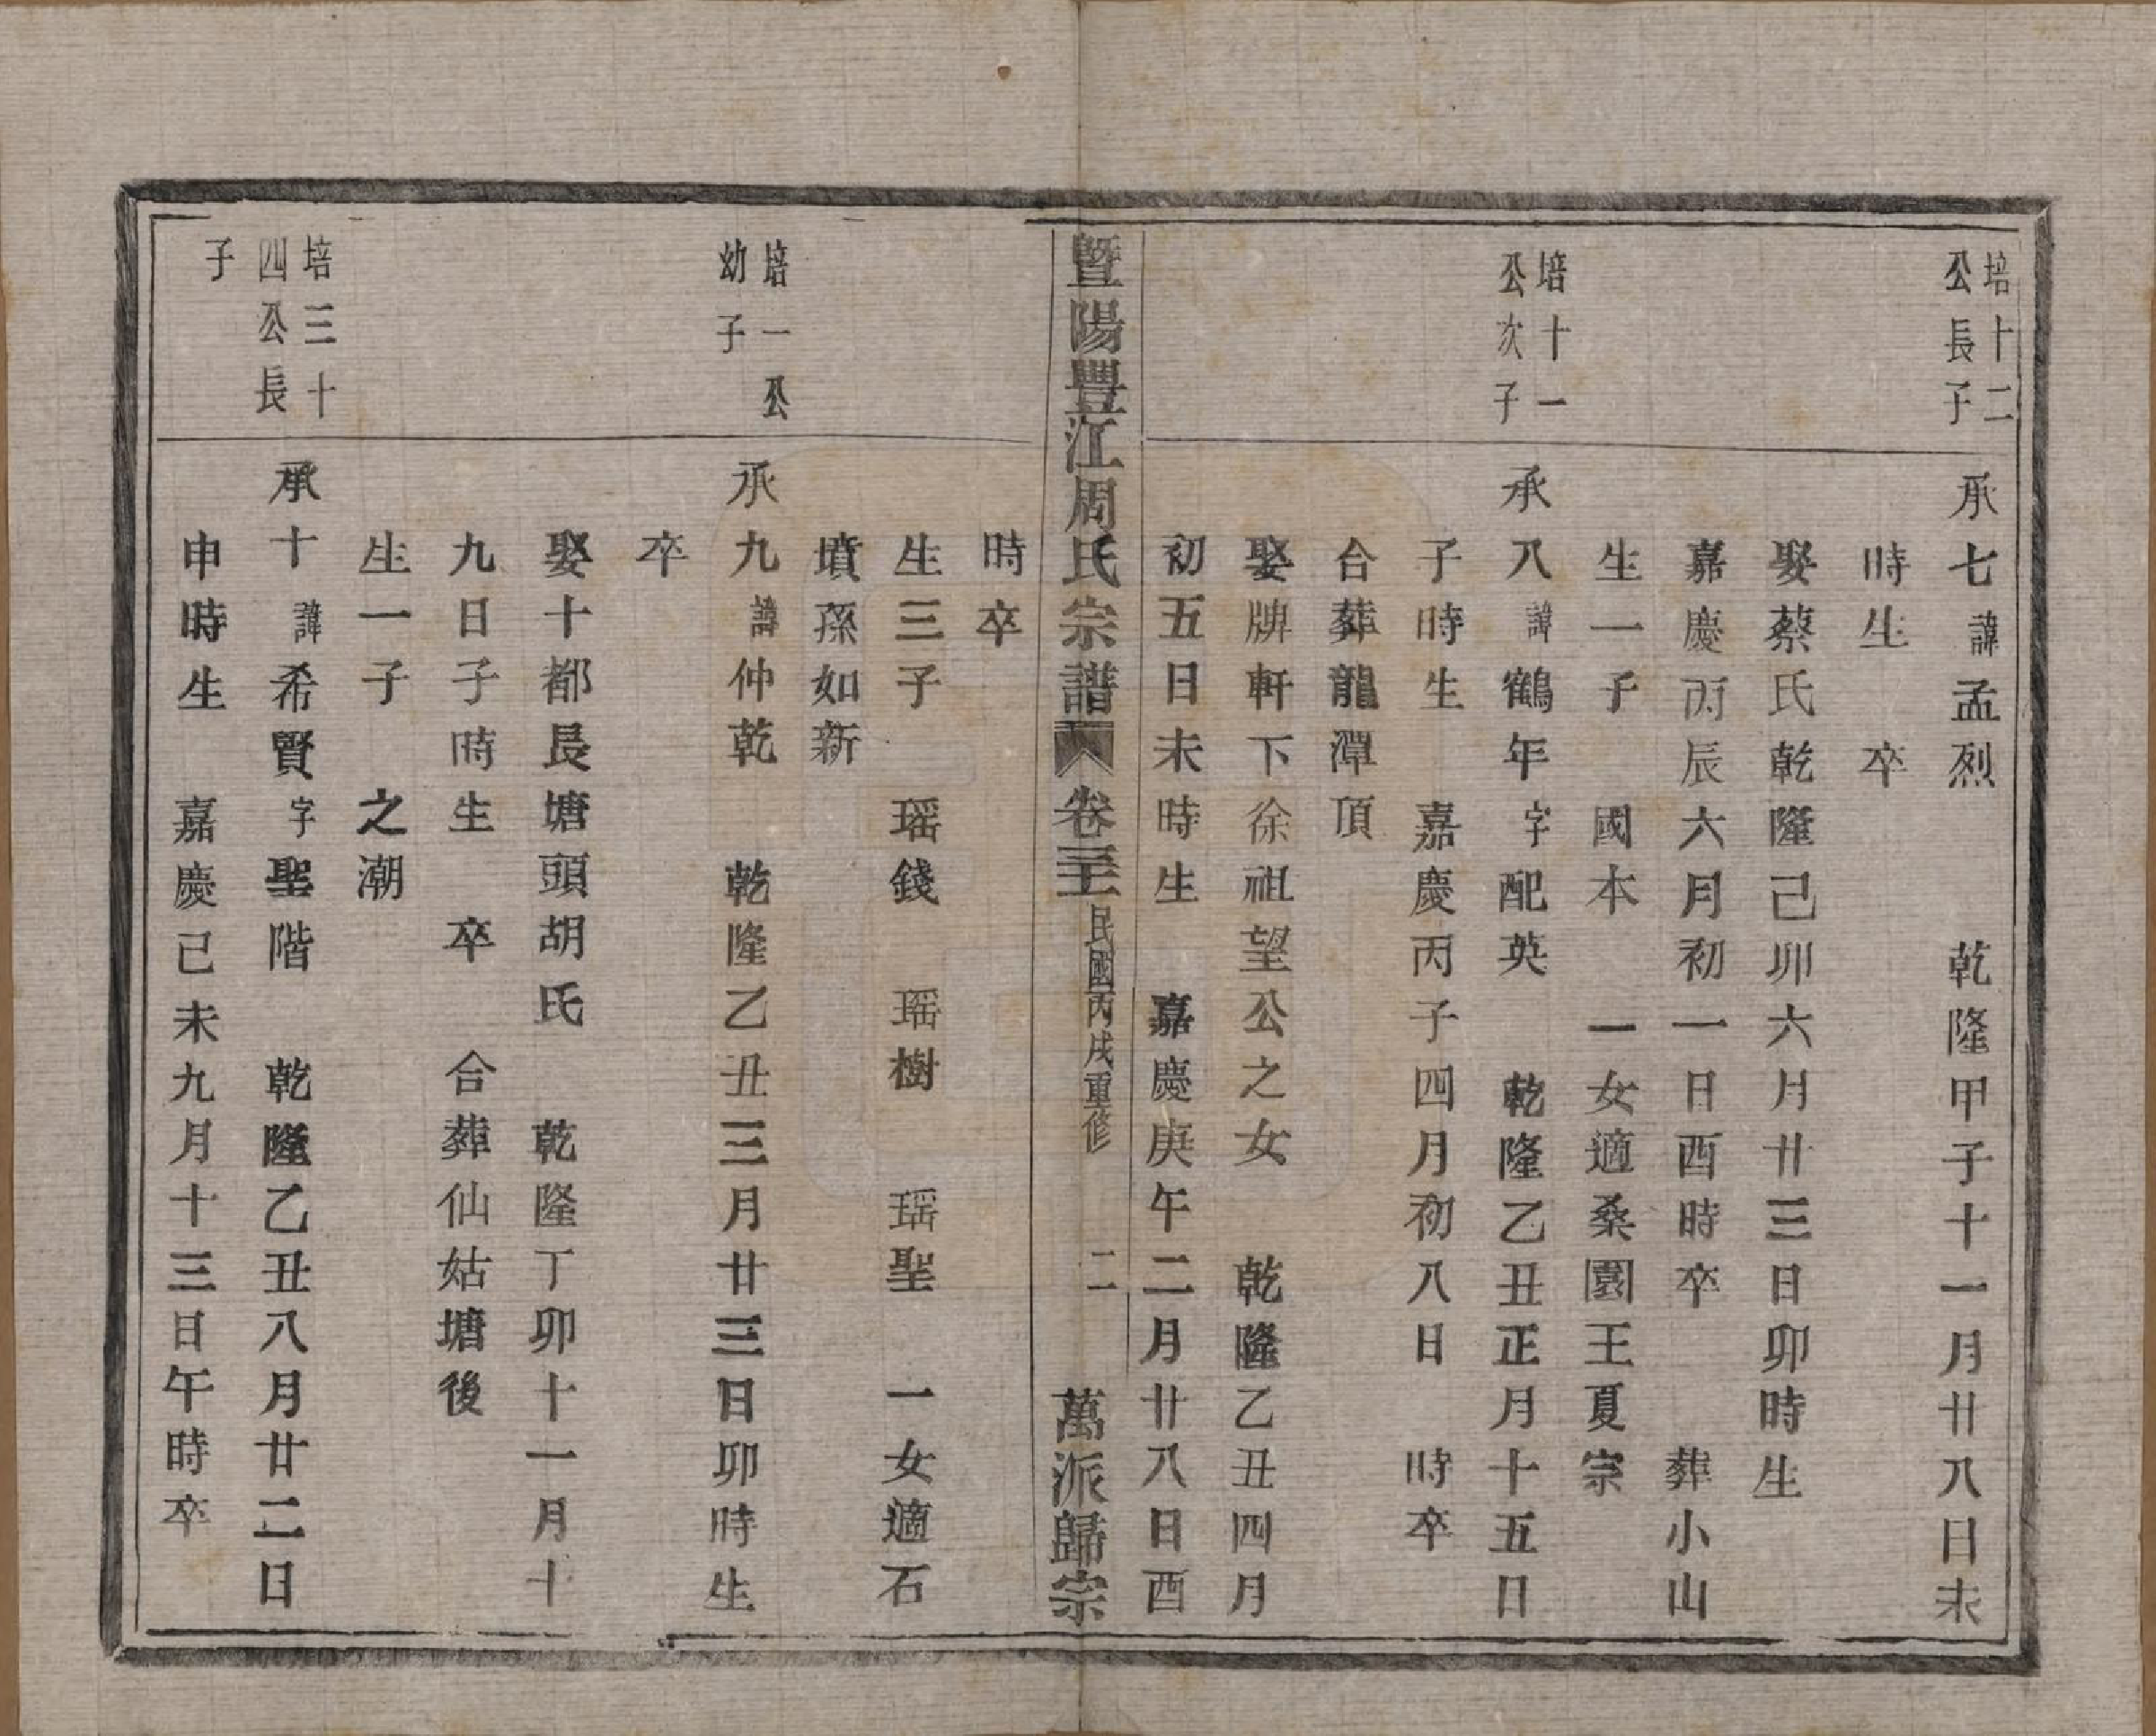 培十二
公長子
承七諱孟烈 乾隆甲子十一月廿八日未
時生 卒
娶蔡氏乾隆己卯六月廿三日卯時生
嘉慶丙辰六月初一日酉時卒 葬小山
生一子 國本 一女適桑園王夏宗
培十一
公次子
承八諱鶴年字配英 乾隆乙丑正月十五日
子時生 嘉慶丙子四月初八日 時卒
合葬龍潭頂
娶牌軒下徐祖望公之女 乾隆乙丑四月
初五日未時生 嘉慶庚午二月廿八日酉
暨陽豐江周氏宗譜 卷 民國丙戌重修 二 萬派歸宗
時卒
生三子 瑶錢 瑶樹 瑶聖 一女適石
墳孫如新
培一公
幼子
承九諱仲乾 乾隆乙丑三月廿三日卯時生
卒
娶十都長塘頭胡氏 乾隆丁卯十一月十
九日子時生 卒 合葬仙姑塘後
生一子 之潮
培三十
四公長
子
承十諱希賢字聖階 乾隆乙丑八月廿二日
申時生 嘉慶己未九月十三日午時卒